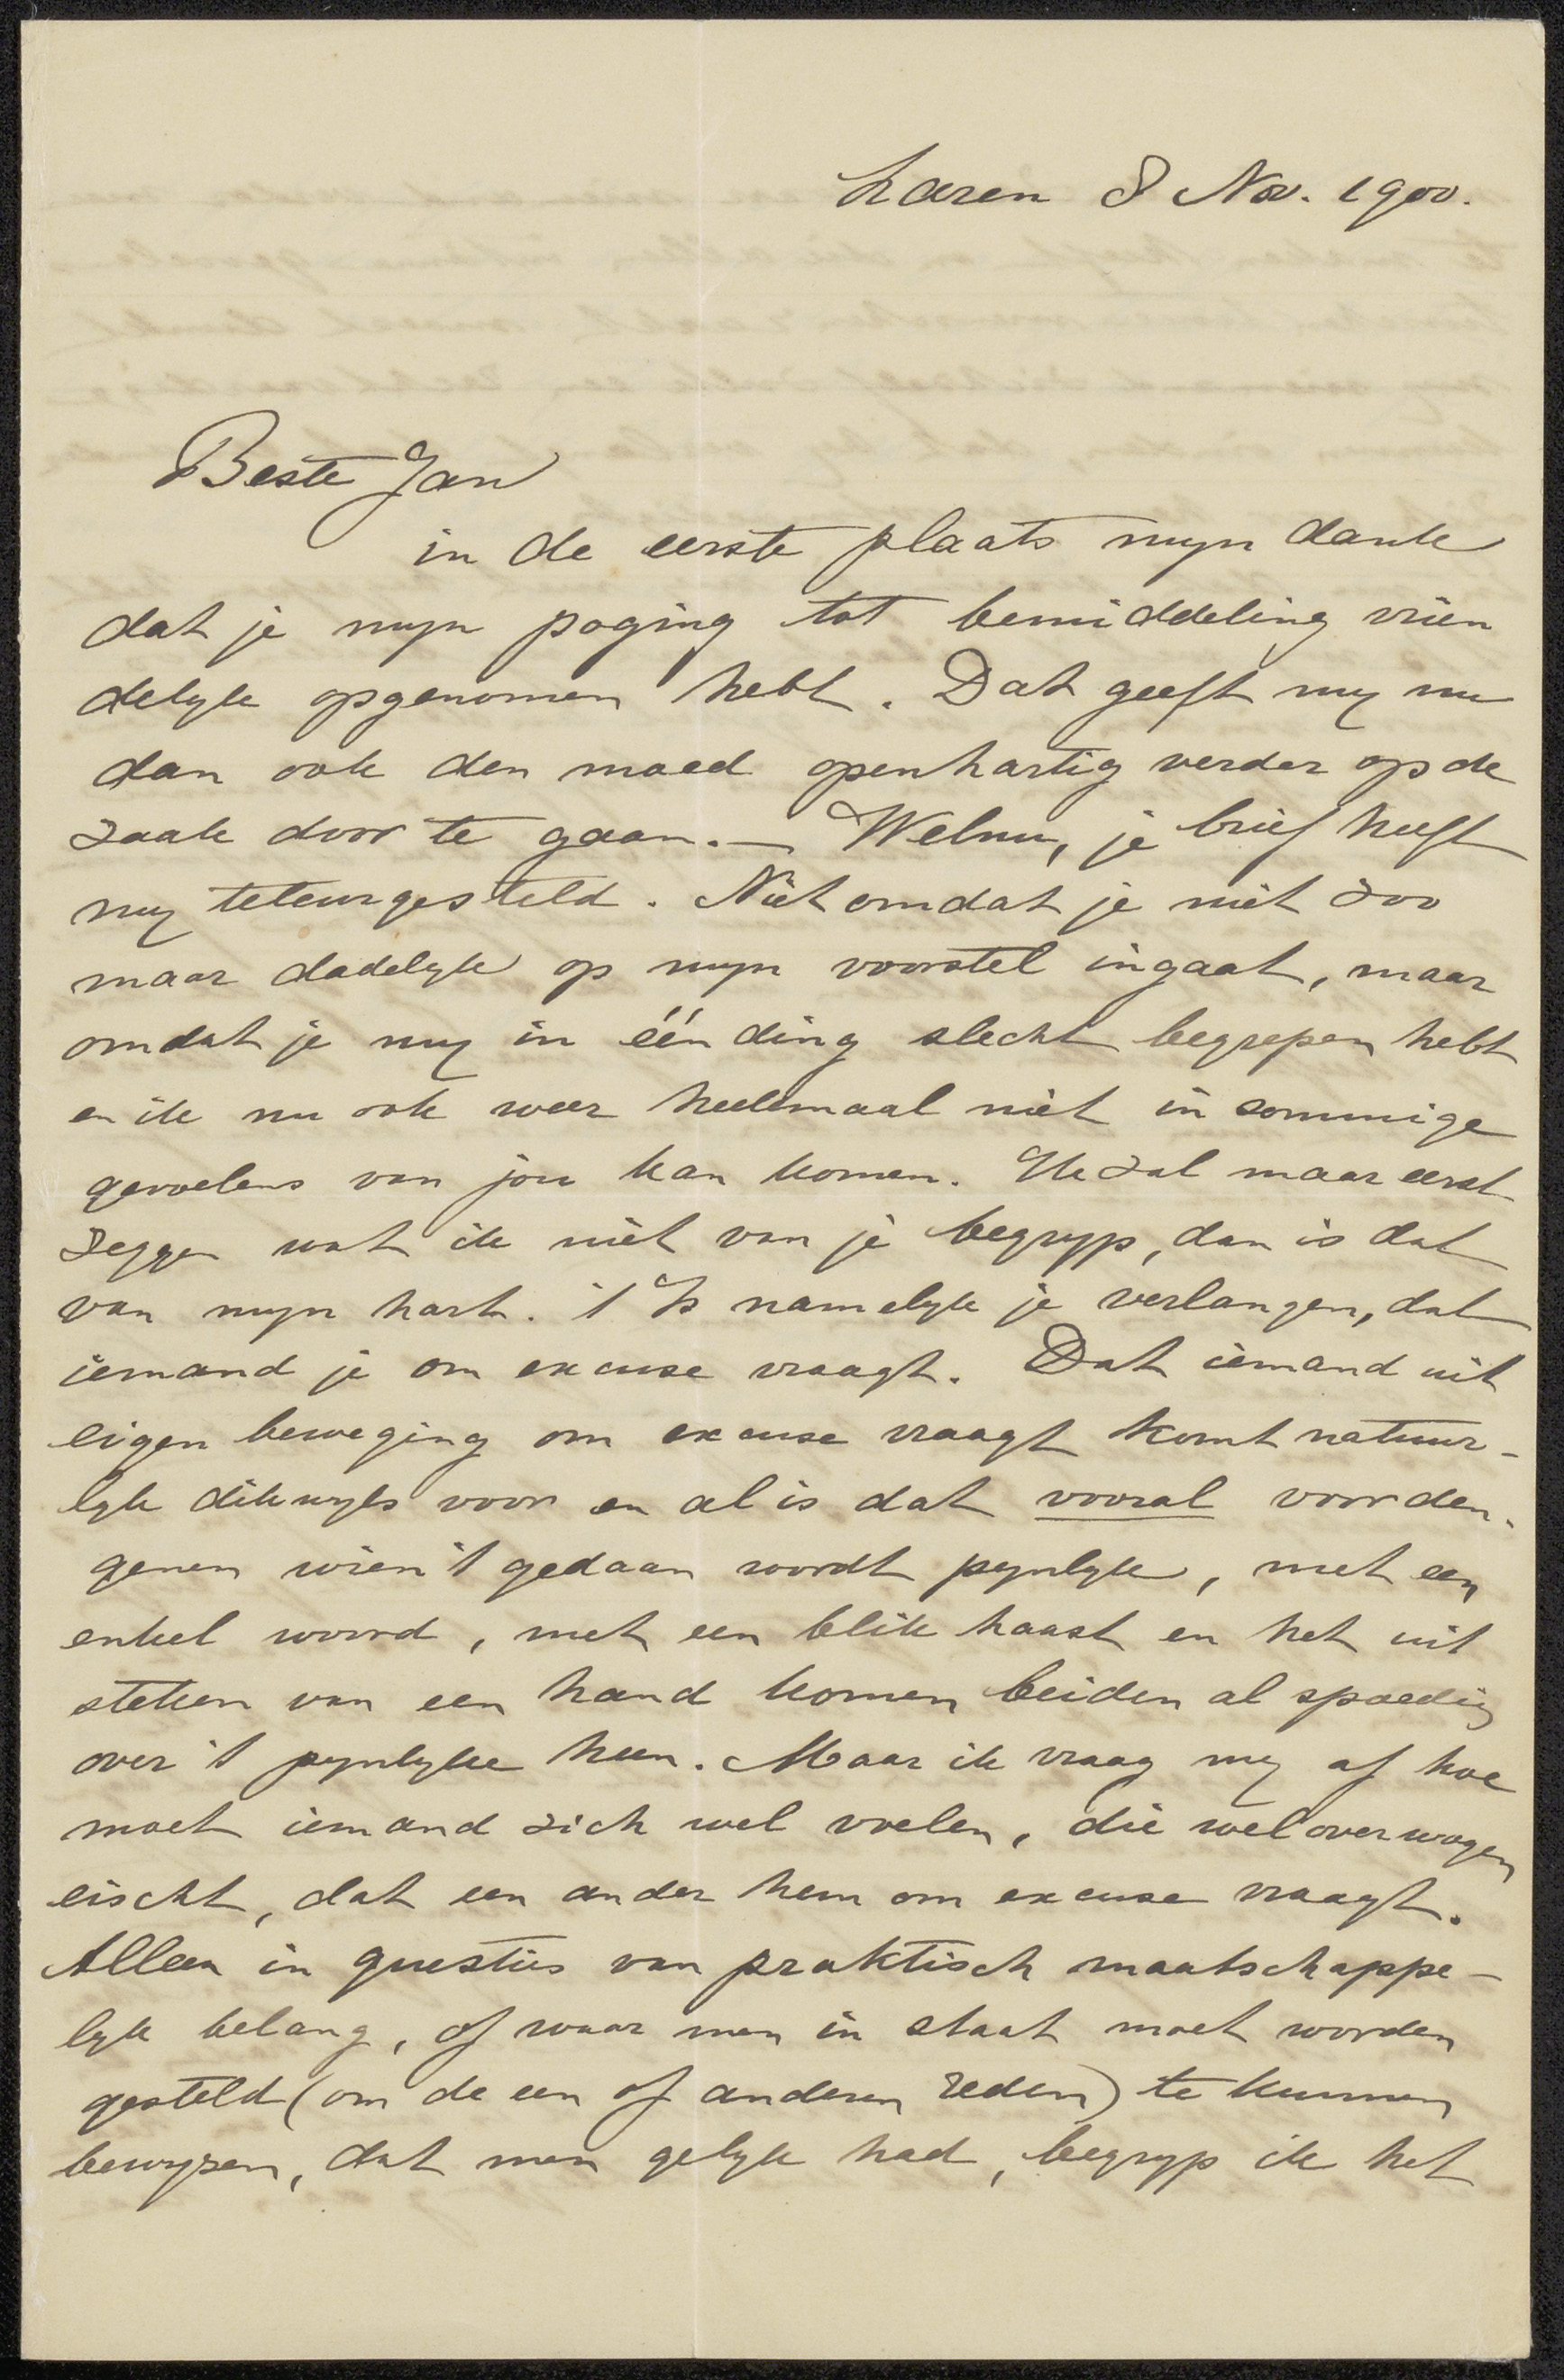 Laren 8 Nov. 1900.
Beste Jan
in de eerste plaats mijn dank
dat je mijn poging tot bemiddeling vrien
delijk opgenomen hebt. Dat geeft mij nu
dan ook den moed openhartig verder op de
zaak door te gaan. — Welnu, je brief heeft
mij teleurgesteld. Niet omdat je niet zoo
maar dadelijk op mijn voorstel ingaat, maar
omdat je mij in één ding slecht begrepen hebt
en ik nu ook weer heelemaal niet in sommige
gevoelens van jou kan komen. Ik zal maar eerst
zeggen wat ik niet van je begrijp, dan is dat
van mijn hart. 't Is namelijk je verlangen, dat
iemand je om excuse vraagt. Dat iemand uit
eigen beweging om excuse vraagt komt natuur-
lijk dikwijls voor en al is dat vooral voor den-
genen wien 't gedaan wordt pijnlijk, met een
enkel woord, met een blik haast en het uit
steken van een hand komen beiden al spoedig
over 't pijnlijke heen. Maar ik vraag mij af hoe
moet iemand zich wel voelen, die wel overwogen
eischt, dat een ander hem om excuse vraagt.
Alleen in questies van praktisch maatschappe-
lijk belang, of waar men in staat moet worden
gesteld (om de een of anderen reden) te kunnen
bewijzen, dat men gelijk had, begrijp ik het